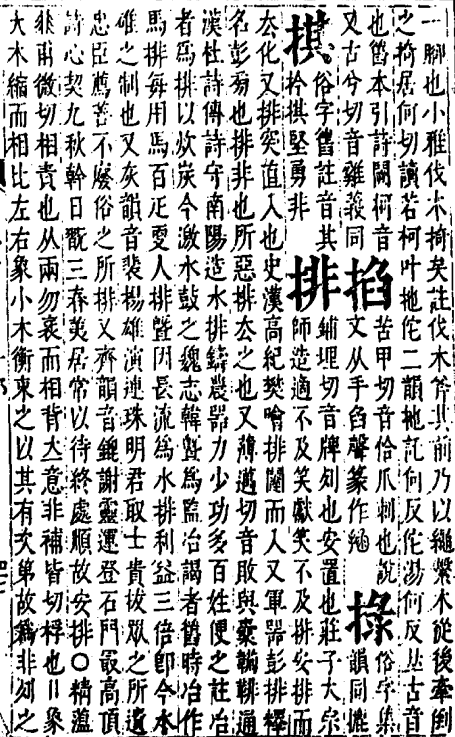 一腳也小雅伐木掎矣註伐木斧其前乃以繩繫木從後牽倒
之掎居何切讀若柯叶扡佗二韻扡託何反佗湯何反𠀤古音
也舊本引詩闕柯音
又古兮切音雞義同
掐
苦甲切音恰爪刺也說
文从手臽聲篆作
俗字集
韻同
掑
俗字舊註音其
拎掑堅勇非
排
鋪埋切音牌列也安置也莊子大宗
師造適不及笑獻笑不及排安排而
去化又排突直入也史漢高紀樊噲排闥而入又軍器彭排釋
名彭旁也排非也所惡排去之也又薄邁切音敗與橐韛鞴通
漢杜詩傳詩守南陽造水排鑄農器力少功多百姓便之註冶
者為排以炊炭今激水鼓之魏志韓曁為監冶謁者舊時冶作
馬排每用馬百疋更人排曁因長流為水排利益三倍卽今水
碓之制也又灰韻音裴揚雄演連珠明君取士貴拔眾之所遺
忠臣薦善不廢俗之所排又齊韻音鎞謝靈運登石門最高頂
詩心契九秋幹目翫三春荑居常以待終處順故安排○精薀
非甫微切相責也从兩勿衰而相背大意非補皆切桴也〢象
大木縮而相比左右象小木衡束之以其有次第故為非列之